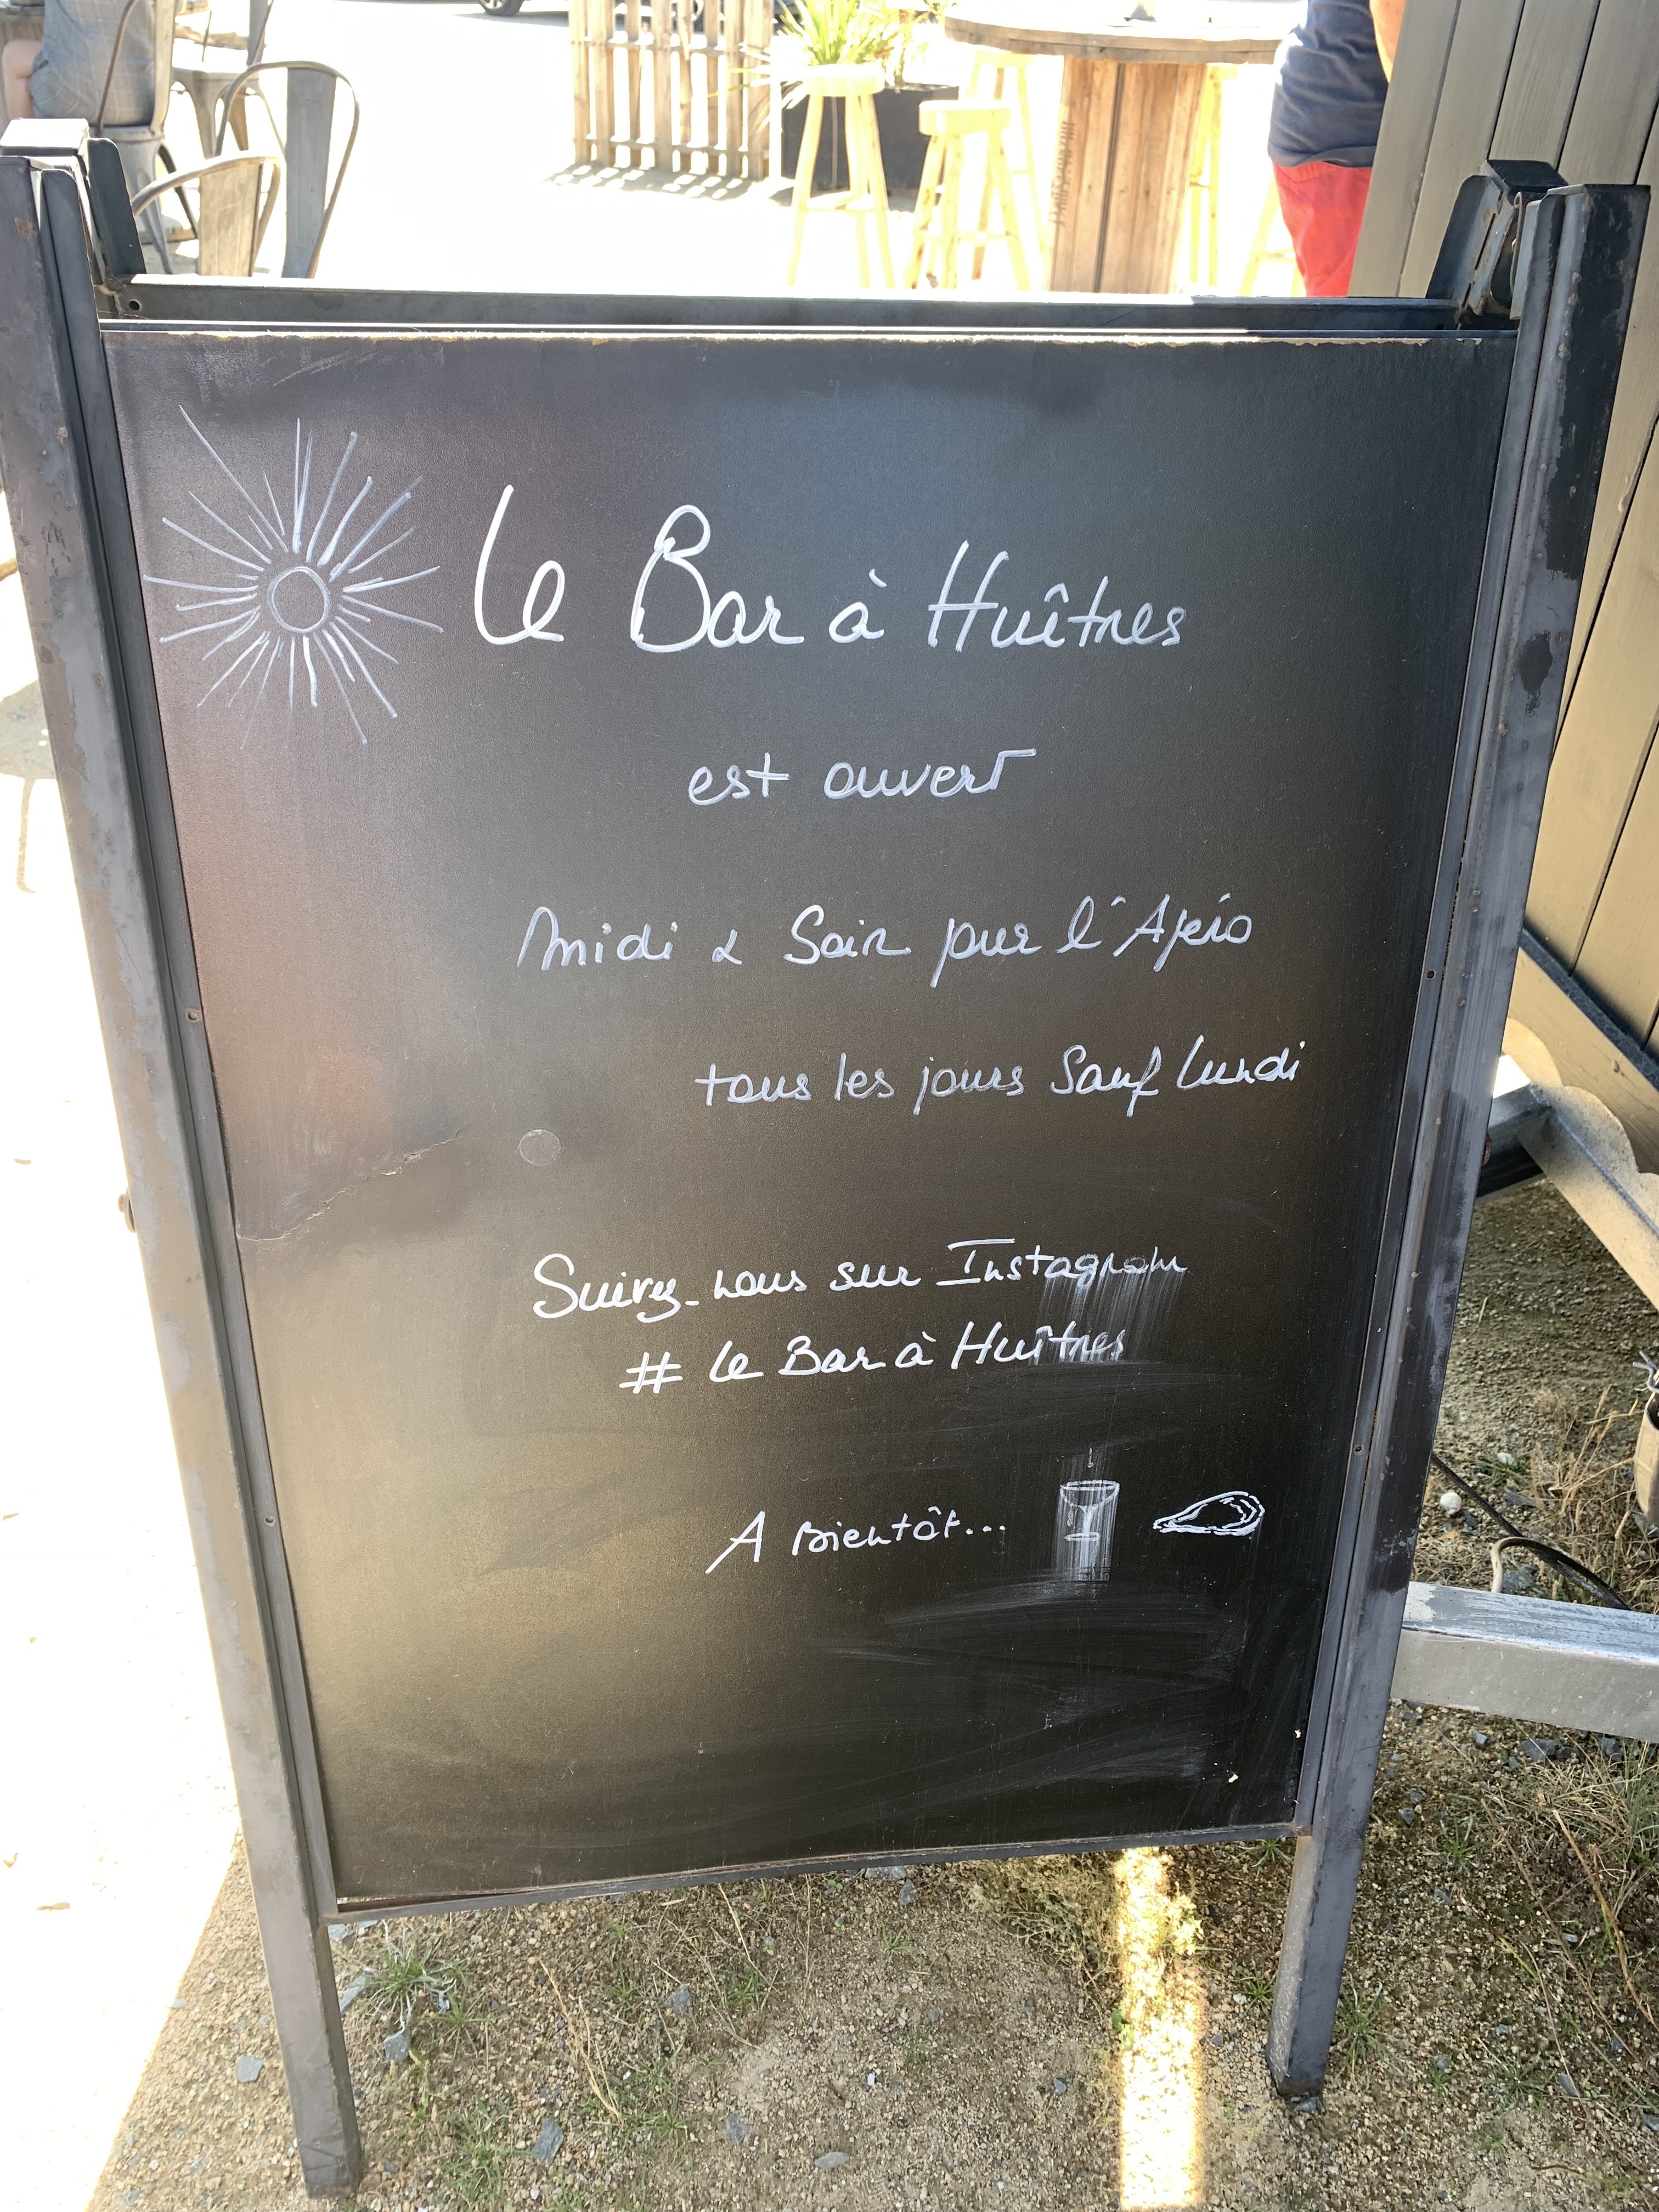 Le Bar à Huîtres
est ouvert
Midi & Soir pour l'Apéro
tous les jours Sauf Lundi
Suivez-nous sur Instagram
# Le Bar à Huîtres
A Bientôt...